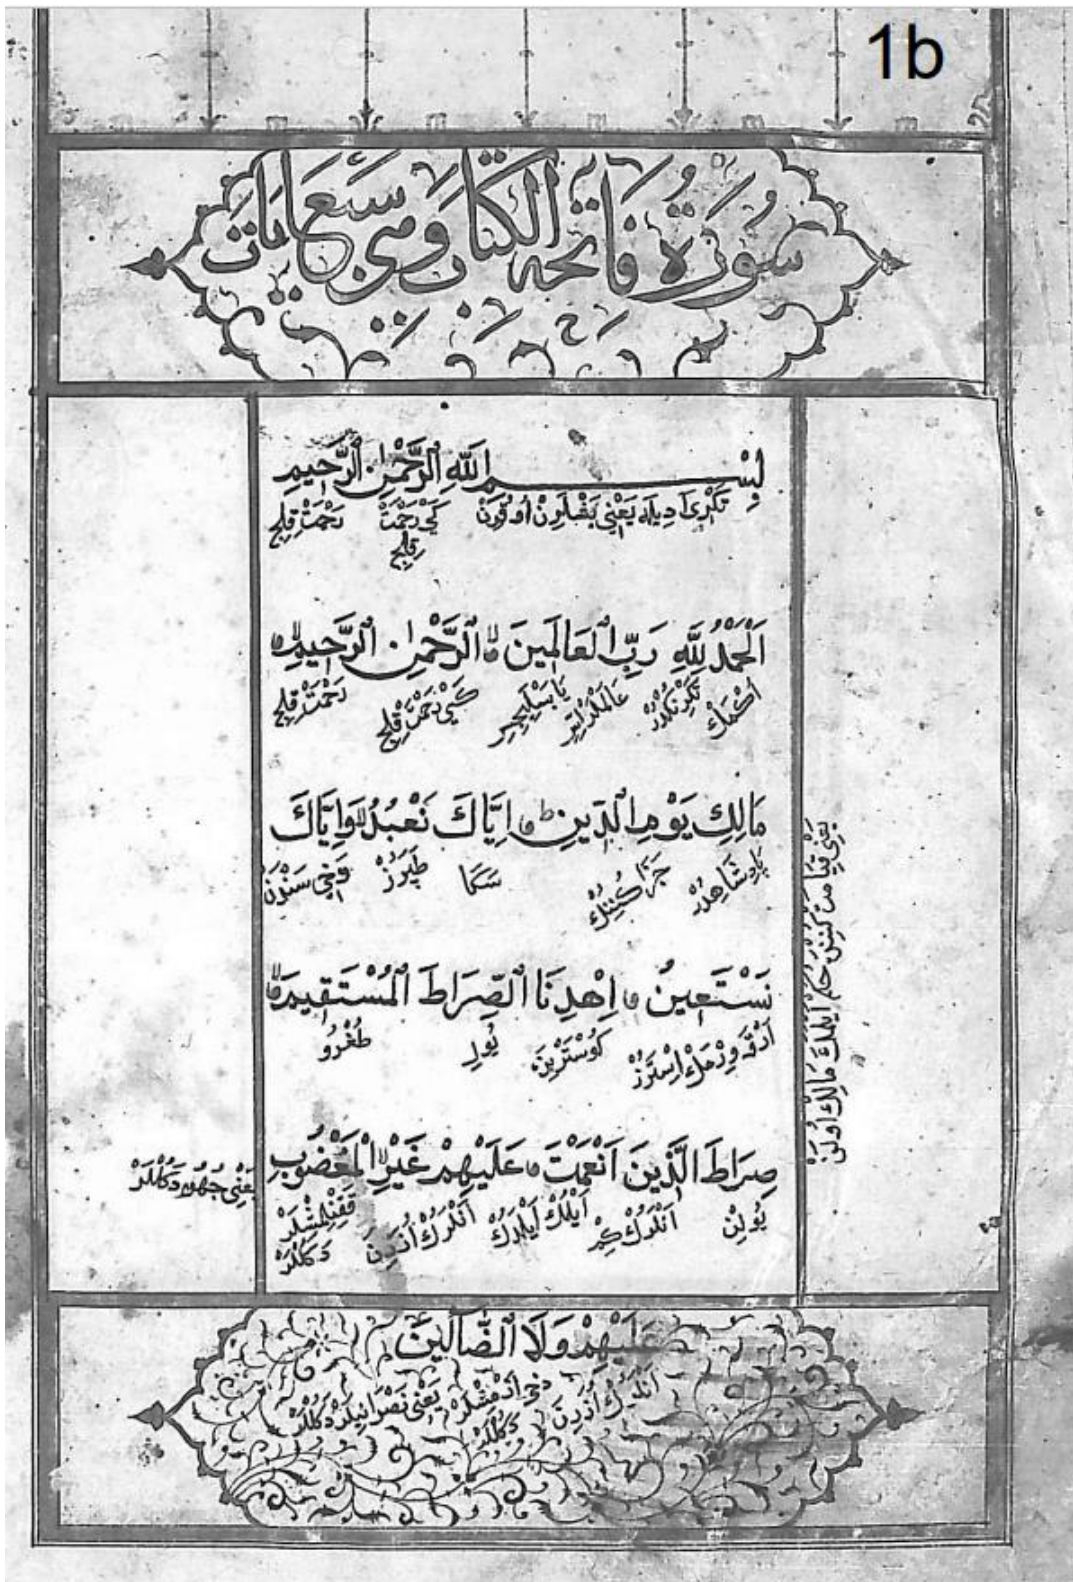 1b
سُورَةُ فَاتِحَةِ الْكِتَابِ وَهِيَ سَبْعُ اٰيَاتٍ
بِسْمِ اللّٰهِ الرَّحْمٰنِ الرَّحِيمِ
تَكْرِى اَدِيلَه يَعْنِي بَشْلَرِونْ اُوقُونْ كَىْ رَحْمَتْ رَحْمَتْ قِلِجِ
قِلِجِ
اَلْحَمْدُ لِلّٰهِ رَبِّ الْعَالَمِينَ الرَّحْمٰنِ الرَّحِيمِ
اُكْمَكْ تَكْرِنُكْدُرْ عَالَمْلَرْ كَىْ رَحْمَتْ قِلِجِ رَحْمَتْ قِلِجِ
مَالِكِ يَوْمِ الدِّينِ اِيَّاكَ نَعْبُدُ وَاِيَّاكَ
پَادِشَاهِدُرْ جَزَا كُنِنُكْ سَكَا طَپَرُزْ دَخِي سَنْدَنْ
نَسْتَعِينُ اِهْدِنَا الصِّرَاطَ الْمُسْتَقِيمَ
اَرْقَه وِرْمَكْ اِسْتَرُزْ كُوسْتَرْ بِزَه يُولِ طُغْرُو
صِرَاطَ الَّذِينَ اَنْعَمْتَ عَلَيْهِمْ غَيْرِ الْمَغْضُوبِ
يُولِنْ اَنْلَرُكْ كِمْ اَيْلُكْ اَيْلَدُكْ اَنْلَرُكْ اُزَرِنَ
دَكُلْلَرْ
يَعْنِى جُهُودْ دَكُلْلَرْ
مَالِكْ اُولَنْ
عَلَيْهِمْ وَلَا الضَّالِّينَ
اَنْلَرُكْ اُزَرِنَ دَخِي اَزْمِشْلَرْ يَعْنِى نَصْرَانِيلَرْ دَكُلْلَرْ
دَكُلْلَرْ